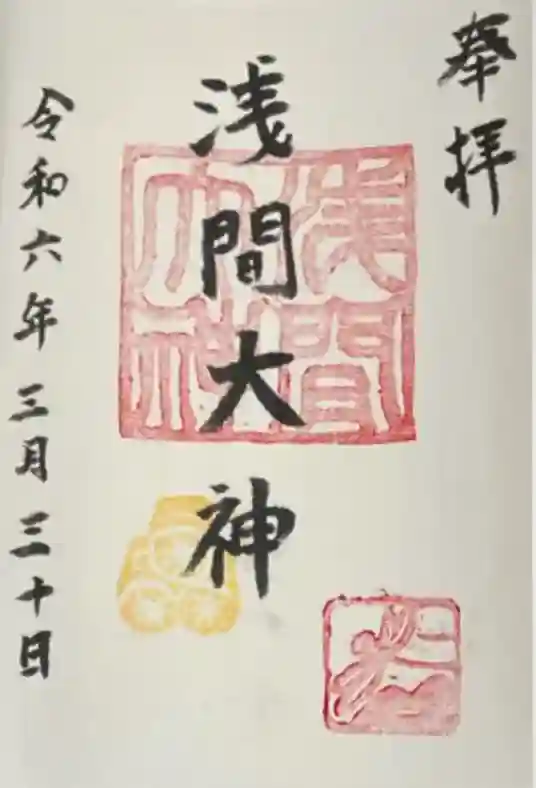 奉拝
浅間大神
浅間大神
令和六年三月三十日